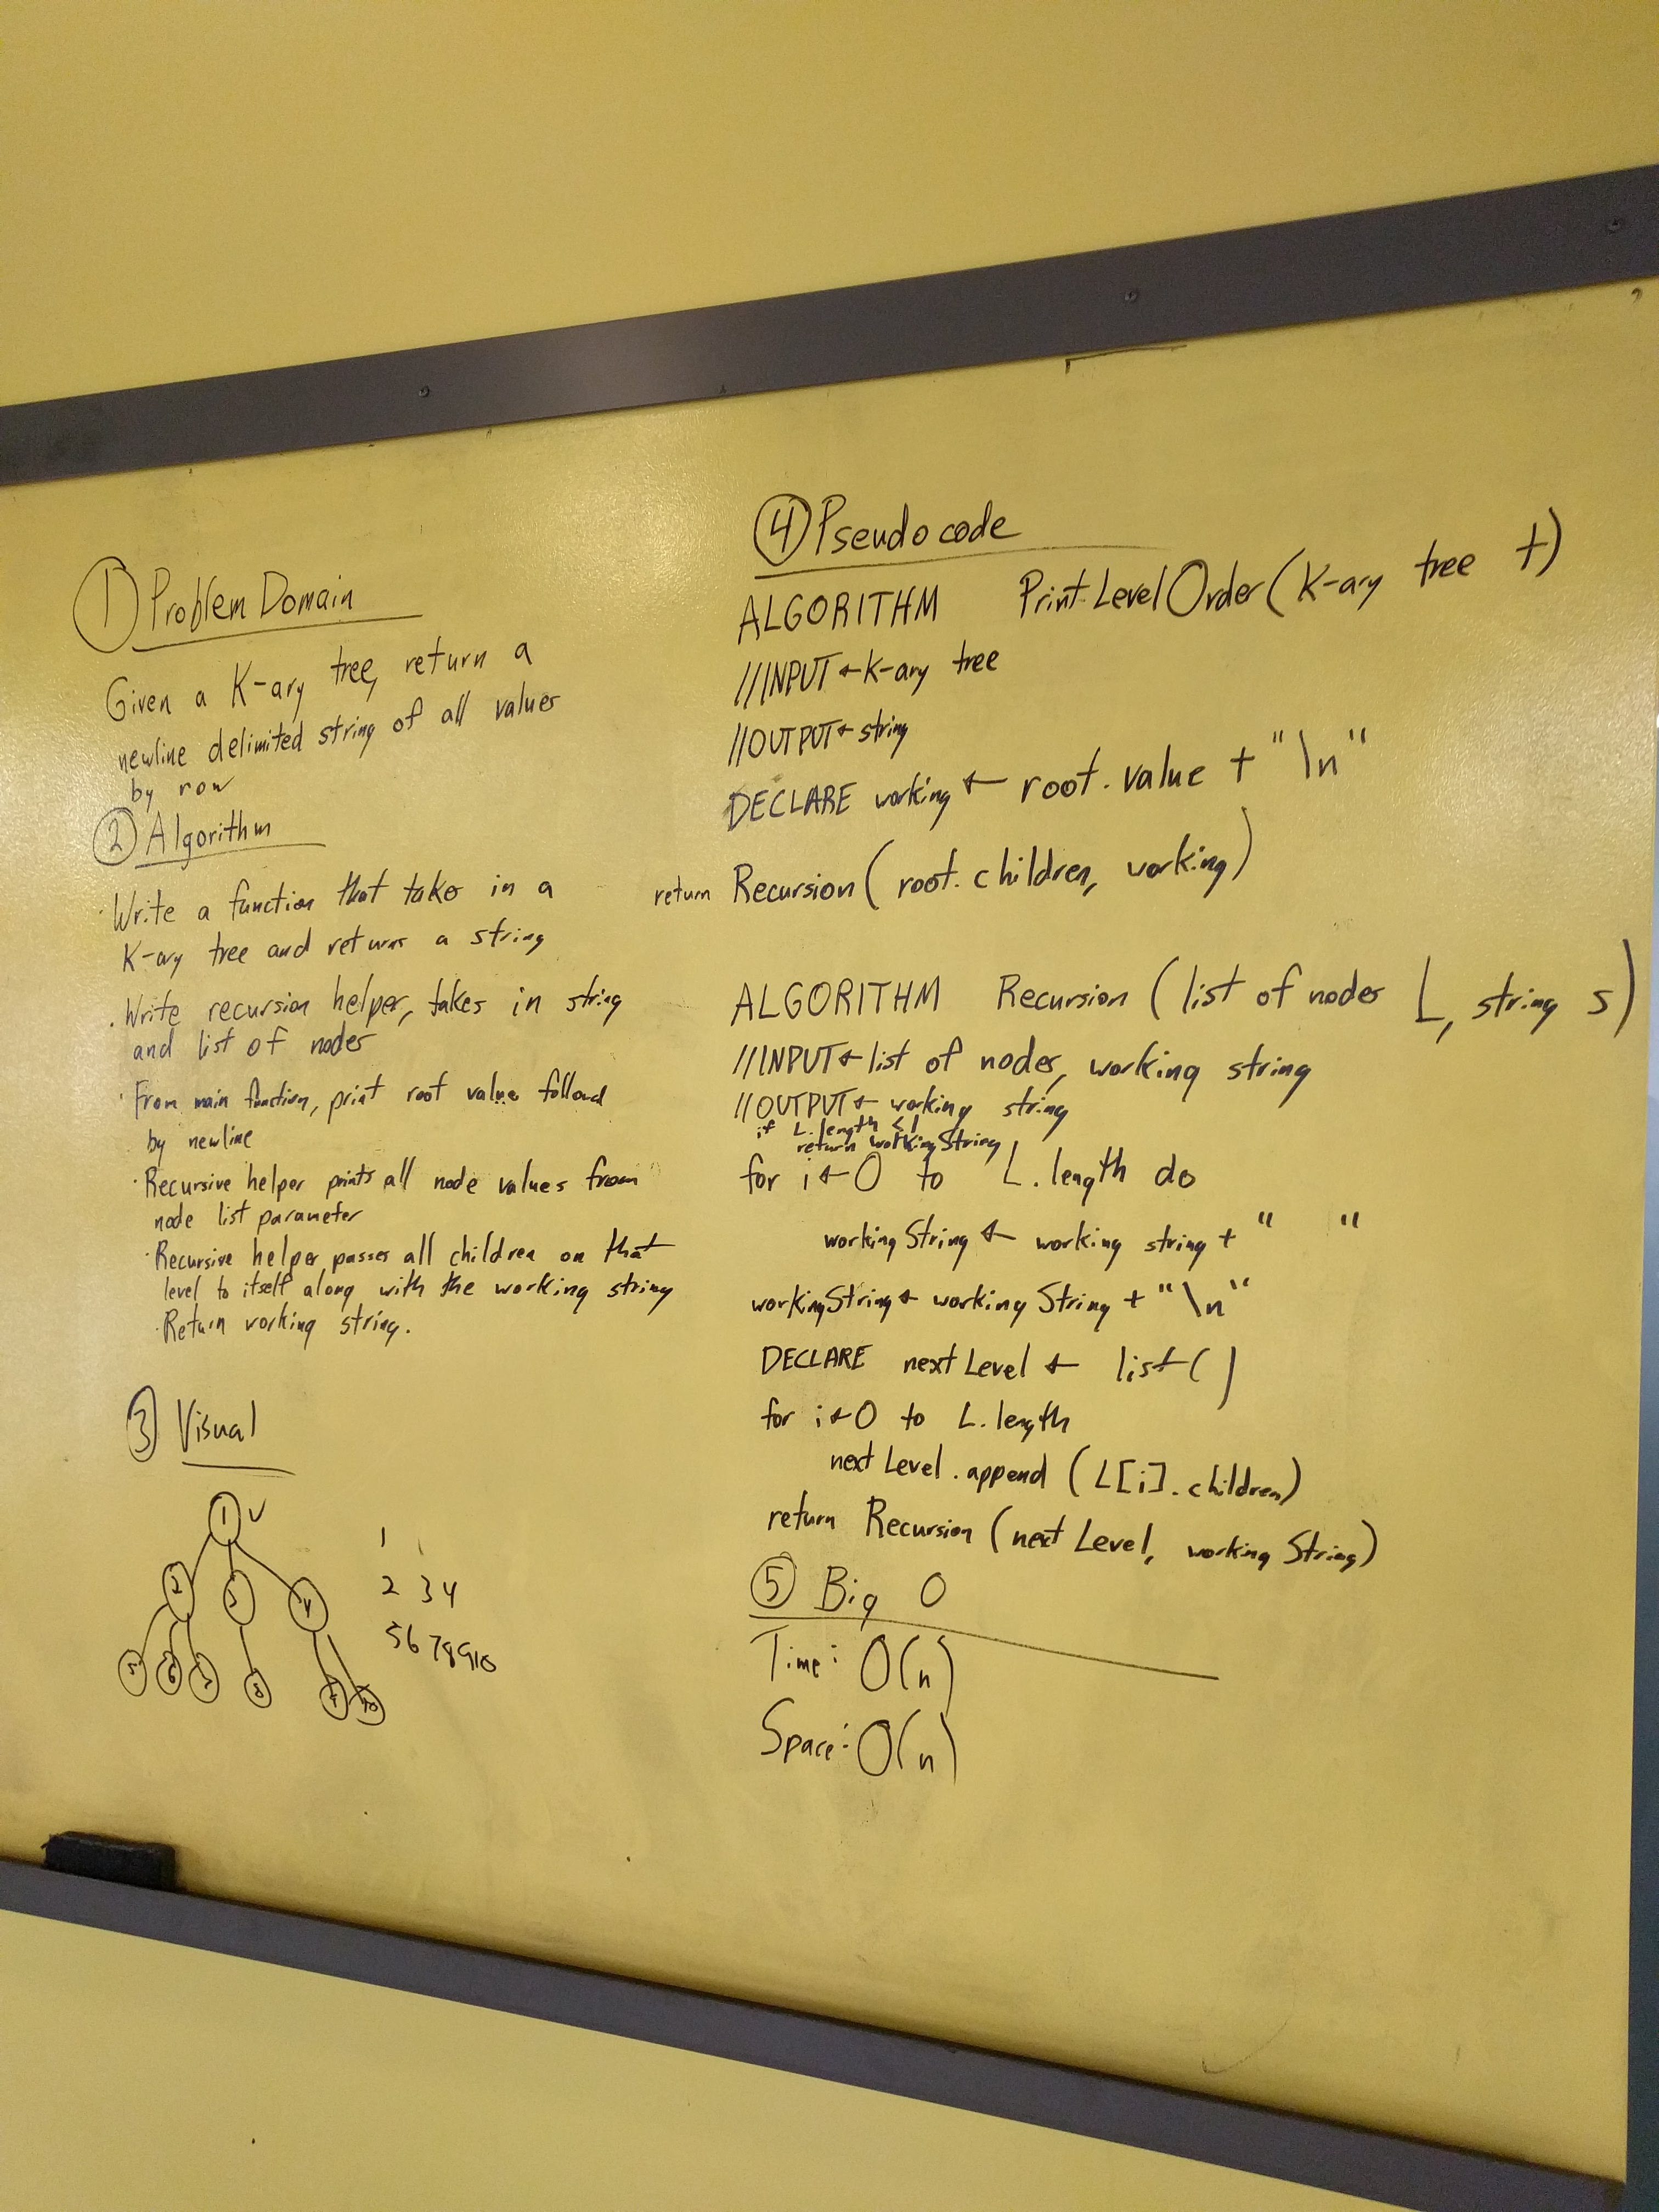 ① Problem Domain
Given a K-ary tree, return a
newline delimited string of all values
by row
② Algorithm
· Write a function that takes in a
K-ary tree and returns a string
· Write recursion helper, takes in string
and list of nodes
· From main function, print root value followed
by newline
· Recursive helper prints all node values from
node list parameter
· Recursive helper passes all children on that
level to itself along with the working string
· Return working string.
③ Visual
1
2 3 4
5 6 7 8 9 10
1
2 3 4
5 6 7 8 9 10
④ Pseudo code
ALGORITHM Print Level Order (K-ary tree t)
//INPUT ← K-ary tree
//OUTPUT ← string
DECLARE working ← root.value + "\n"
return Recursion (root.children, working)
ALGORITHM Recursion (list of nodes L, string s)
//INPUT ← list of nodes, working string
//OUTPUT ← working string
if L.length < 1
return workingString
for i ← 0 to L.length do
workingString ← working string + " "
workingString ← working String + "\n"
DECLARE next Level ← list()
for i ← 0 to L.length
next Level.append (L[i].children)
return Recursion (next Level, working String)
⑤ Big O
Time: O(n)
Space: O(n)